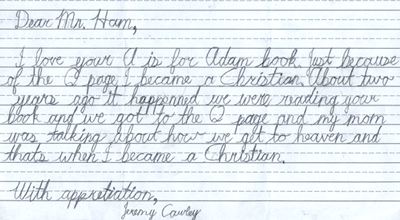 Dear Mr. Ham,
I love your A is for Adam book. Just because
of the Q page I became a Christian. About two
years ago it happenned we were reading your
book and we got to the Q page and my mom
was talking about how we get to heaven and
thats when I became a Christian.
With appretiation,
Jeremy Cawley